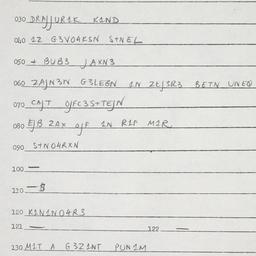 030 DRAJJUR1K K1ND
040 12 G3VO4KSN S+NEL
050 + BUB3 JAXN3
060 2AJN3N G3LEBN 1N 2EJSR3 BETN UNEQ
070 CAJT OJFC3S+TEJN
080 EJB 2AX OJF 1N R1F M1R
090 S+NO4RXN
100 —
110 — B
120 K1N1NO4R3
121 — 122 —
130 M1T A G3Z1NT PUN1M